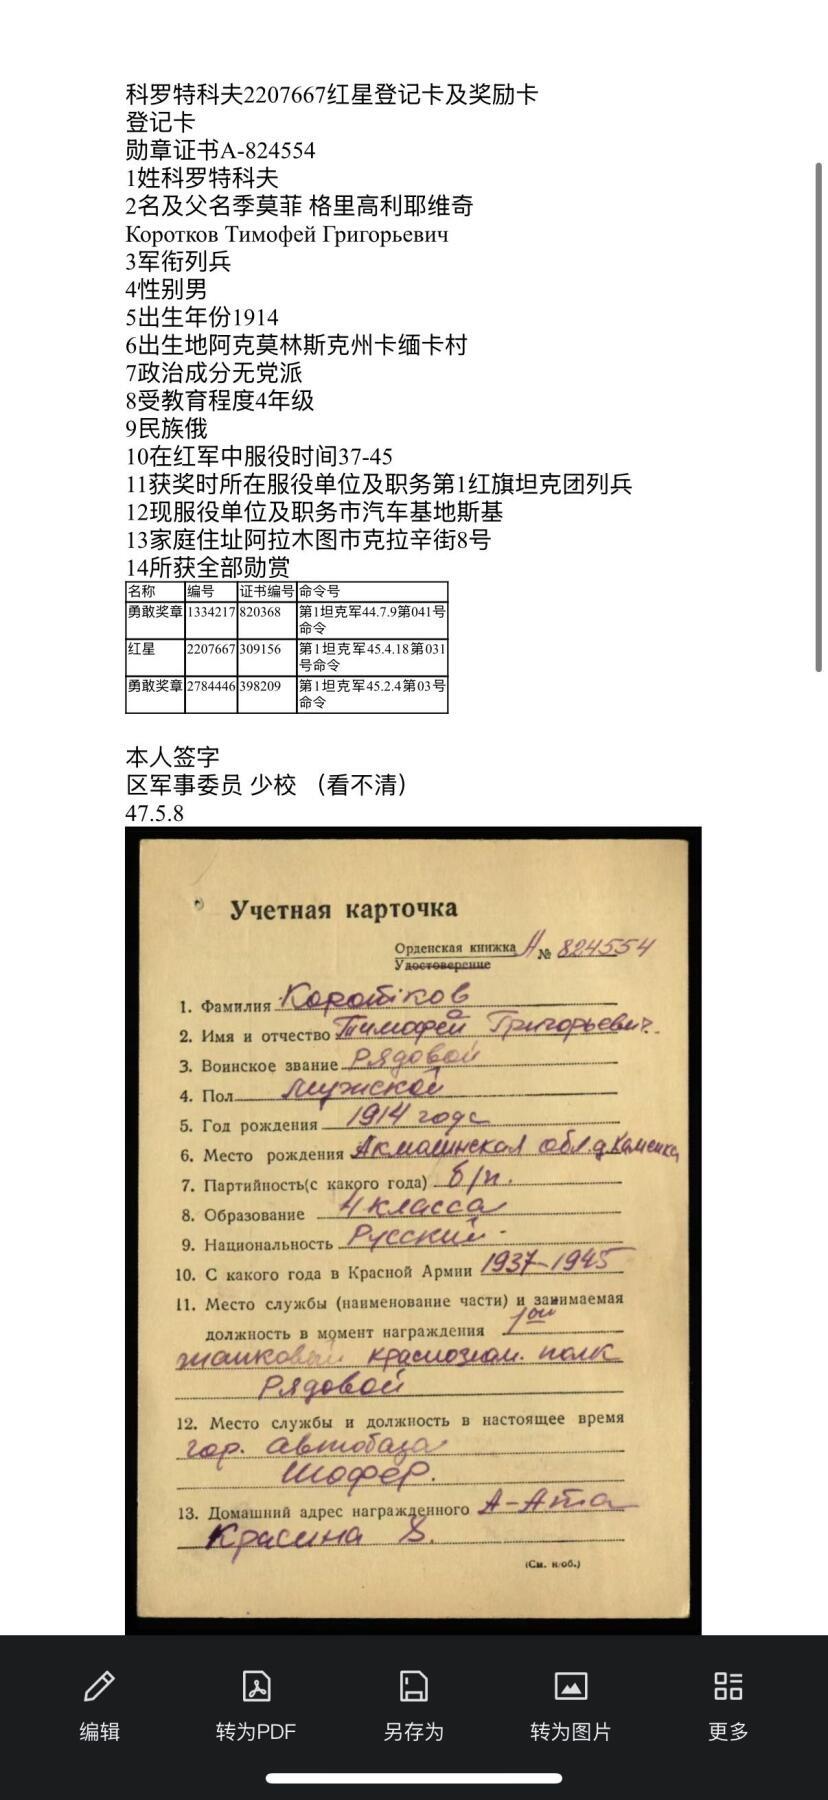 科罗特科夫2207667红星登记卡及奖励卡
登记卡
勋章证书A-824554
1姓科罗特科夫
2名及父名季莫菲 格里高利耶维奇
Коротков Тимофей Григорьевич
3军衔列兵
4性别男
5出生年份1914
6出生地阿克莫林斯克州卡缅卡村
7政治成分无党派
8受教育程度4年级
9民族俄
10在红军中服役时间37-45
11获奖时所在服役单位及职务第1红旗坦克团列兵
12现服役单位及职务市汽车基地斯基
13家庭住址阿拉木图市克拉辛街8号
14所获全部勋赏
名称 编号 证书编号 命令号
勇敢奖章 1334217 820368 第1坦克军44.7.9第041号
命令
红星 2207667 309156 第1坦克军45.4.18第031
号命令
勇敢奖章 2784446 398209 第1坦克军45.2.4第03号
命令
本人签字
区军事委员 少校 （看不清）
47.5.8
Учетная карточка
Орденская книжка А № 824554
Удостоверение
1. Фамилия Коротков
2. Имя и отчество Тимофей Григорьевич.
3. Воинское звание Рядовой
4. Пол Мужской
5. Год рождения 1914 года
6. Место рождения Акмолинская обл. д. Каменка
7. Партийность(с какого года) б/п.
8. Образование 4 класса
9. Национальность Русский
10. С какого года в Красной Армии 1937-1945
11. Место службы (наименование части) и занимаемая
должность в момент награждения 1ой
танковый краснознам. полк
Рядовой
12. Место службы и должность в настоящее время
гор. автобаза
Шофер.
13. Домашний адрес награжденного А-Ата
Красина 8.
(См. н/об.)
编辑 转为PDF 另存为 转为图片 更多